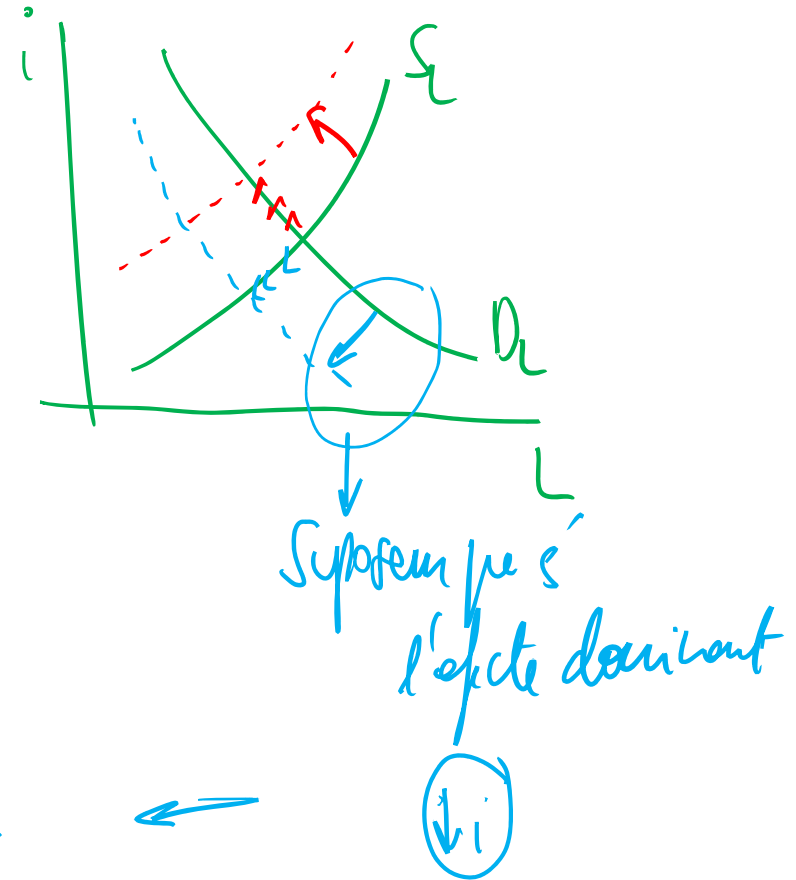 i
S_L
D_L
L
Suposem que és
l'efecte dominant
↓i